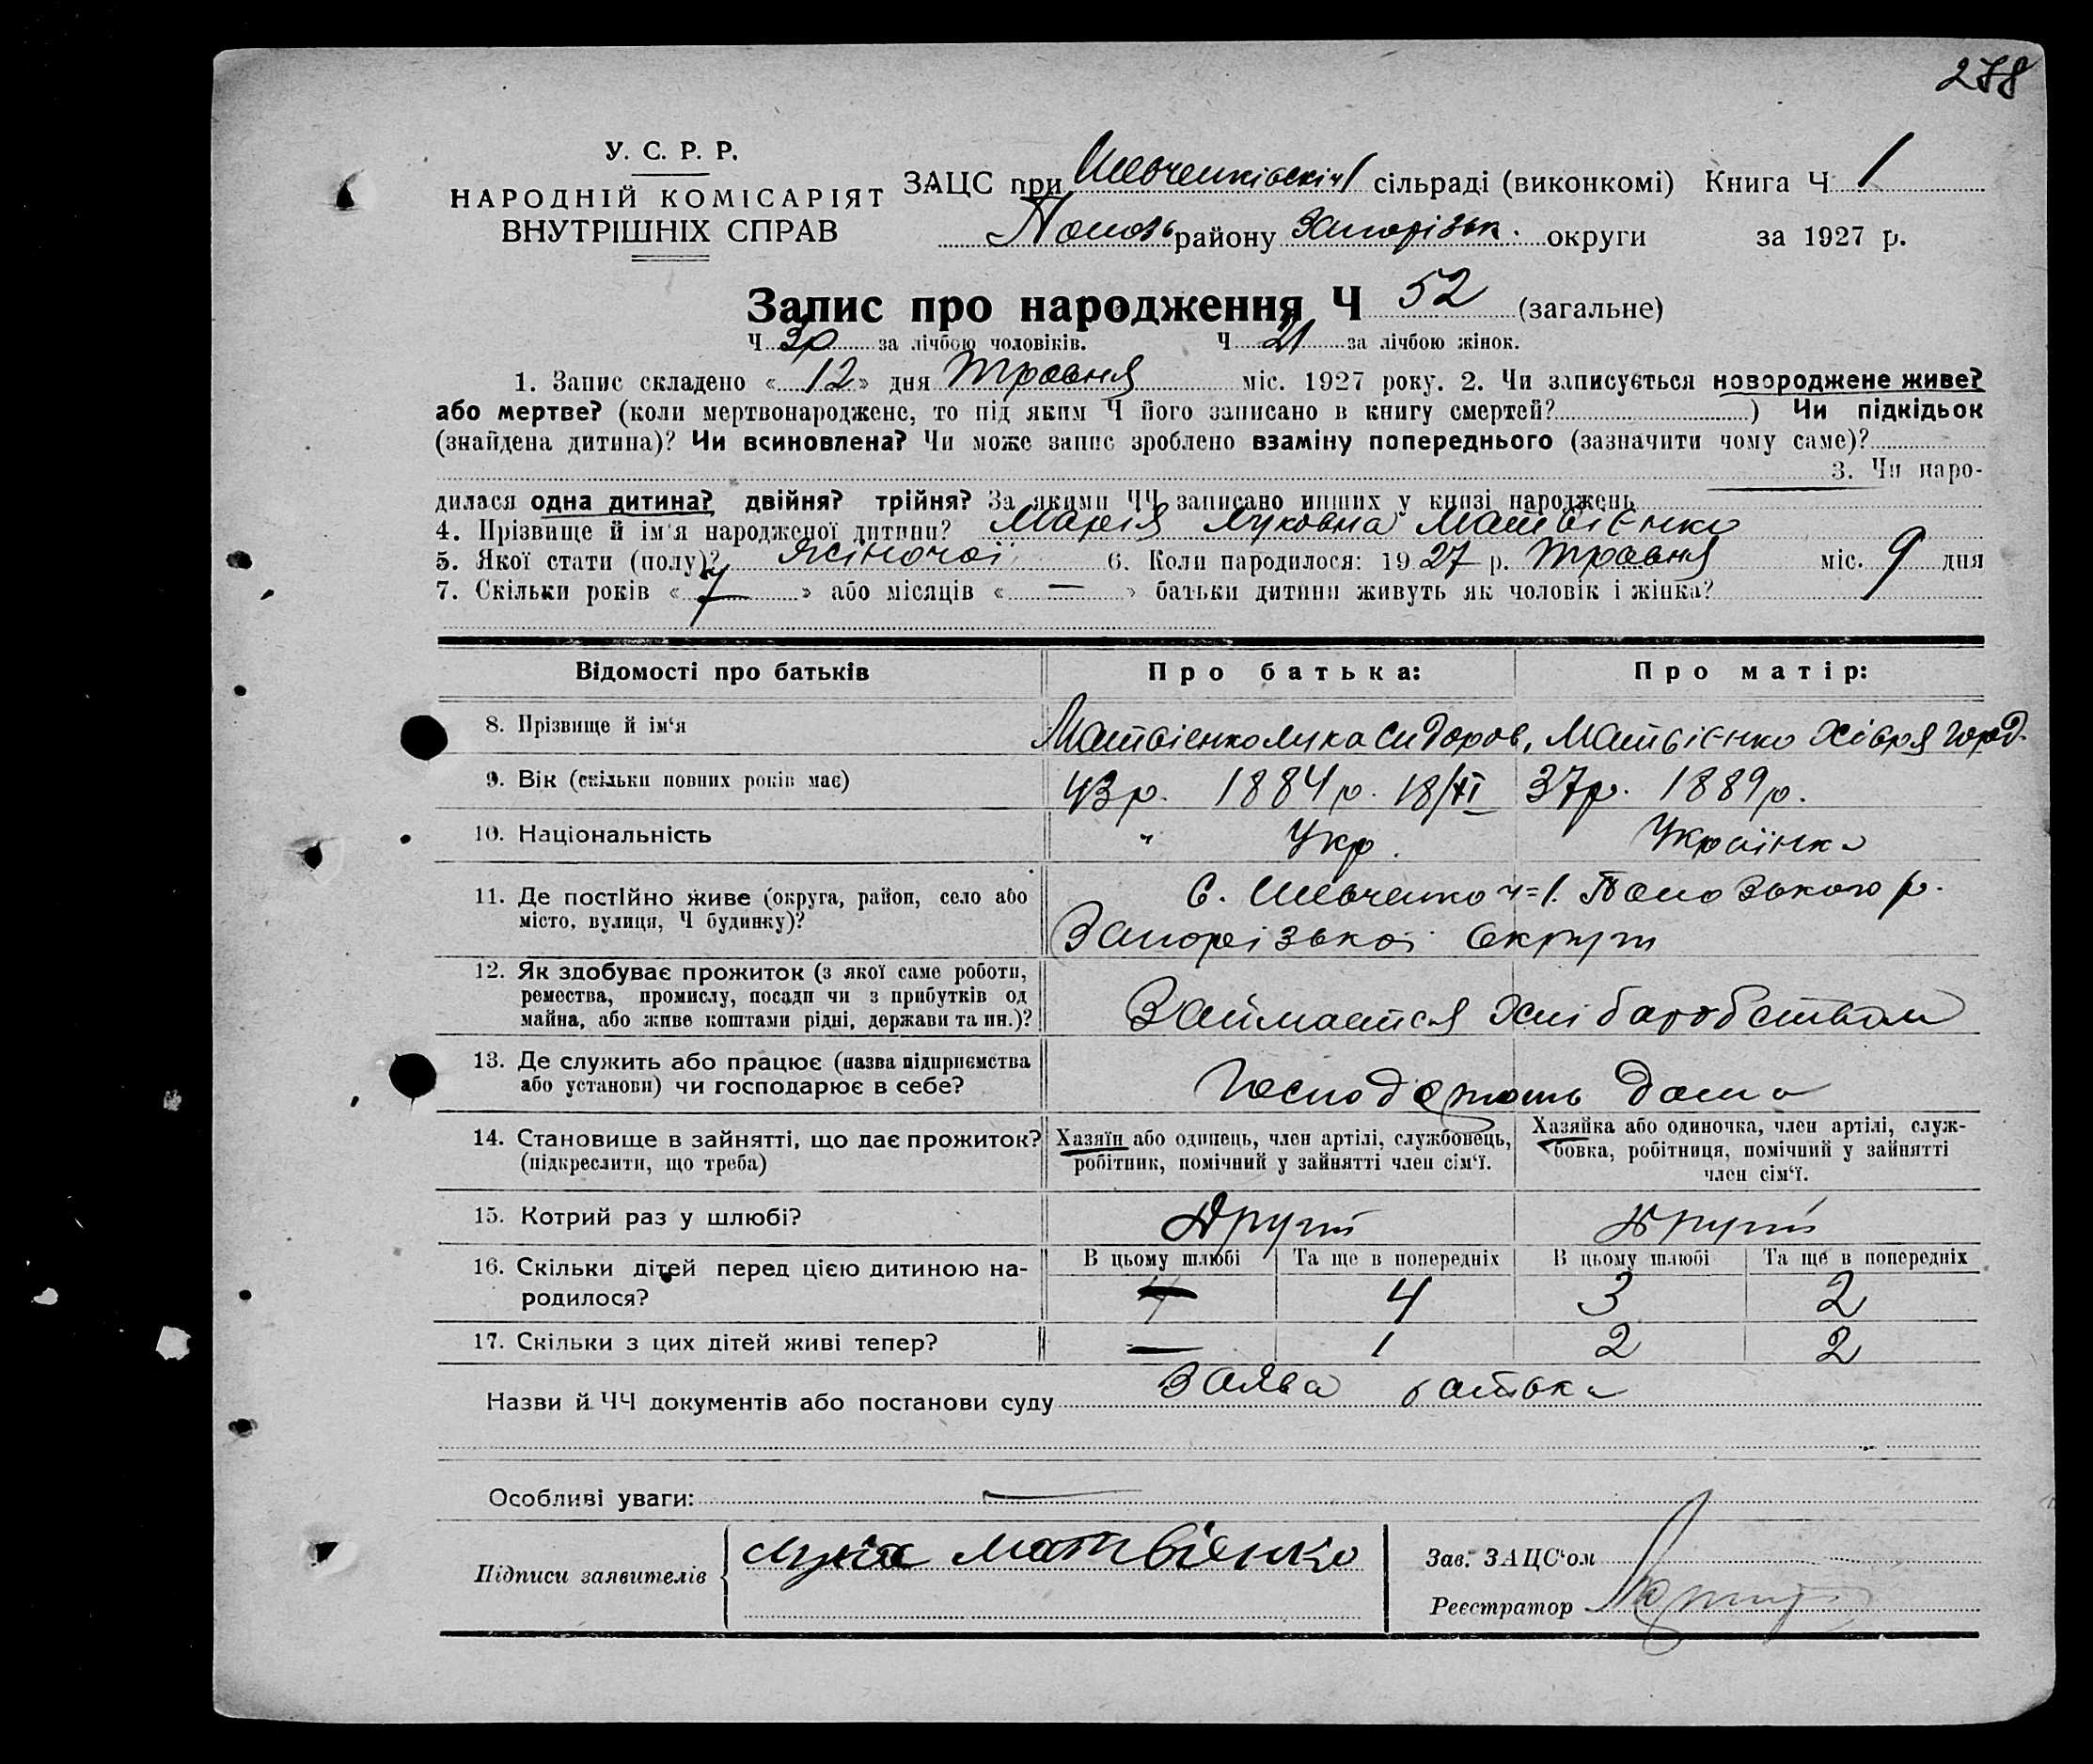 278
У. С. Р. Р.
НАРОДНІЙ КОМІСАРІЯТ
ВНУТРІШНІХ СПРАВ
ЗАЦС при Шевченківскій 1 сільраді (виконкомі) Книга Ч 1
району Запорізьк. округи за 1927 р.
Запис про народження Ч 52 (загальне)
Ч за лічбою чоловіків. Ч 21 за лічбою жінок.
1. Запис складено « 12 » дня Травня міс. 1927 року. 2. Чи записується новороджене живе?
або мертве? (коли мертвонароджене, то під яким Ч його записано в книгу смертей? ) Чи підкідьок
(знайдена дитина)? Чи всиновлена? Чи може запис зроблено взаміну попереднього (зазначити чому саме)?
3. Чи наро-
дилася одна дитина? двійня? трійня? За якими ЧЧ записано инших у книзі народжень
4. Прізвище й ім'я народженої дитини? Марія Луковна Матвієнко
5. Якої стати (полу)? жіночої 6. Коли народилося: 1927 р. Травня міс. 9 дня
7. Скільки років « » або місяців « — » батьки дитини живуть як чоловік і жінка?
Відомості про батьків Про батька: Про матір:
8. Прізвище й ім'я Матвієнко Лука Сидоров, Матвієнко Хівря
9. Вік (скільки повних років має) 43 р. 1884 р. 18/XI 37 р. 1889 р.
10. Національність " Укр. Українка
11. Де постійно живе (округа, район, село або
місто, вулиця, Ч будинку)?
С. Шевченко ч=1. р.
Запорізької округи
12. Як здобуває прожиток (з якої саме роботи,
ремества, промислу, посади чи з прибутків од
майна, або живе коштами рідні, держави та ин.)?
Займается хліборобством
13. Де служить або працює (назва підприємства
або установи) чи господарює в себе?
дома
14. Становище в зайнятті, що дає прожиток?
(підкреслити, що треба)
Хазяїн або одинець, член артілі, службовець,
робітник, помічний у зайнятті член сім'ї.
Хазяйка або одиночка, член артілі, служ-
бовка, робітниця, помічний у зайнятті
член сім'ї.
15. Котрий раз у шлюбі? Другий Другий
16. Скільки дітей перед цією дитиною на-
родилося?
В цьому шлюбі Та ще в попередніх В цьому шлюбі Та ще в попередніх
4 3 2
17. Скільки з цих дітей живі тепер? — 1 2 2
Назви й ЧЧ документів або постанови суду Заява батька
Особливі уваги: —
Підписи заявителів Лука Матвієнко
Зав. ЗАЦС'ом
Реєстратор